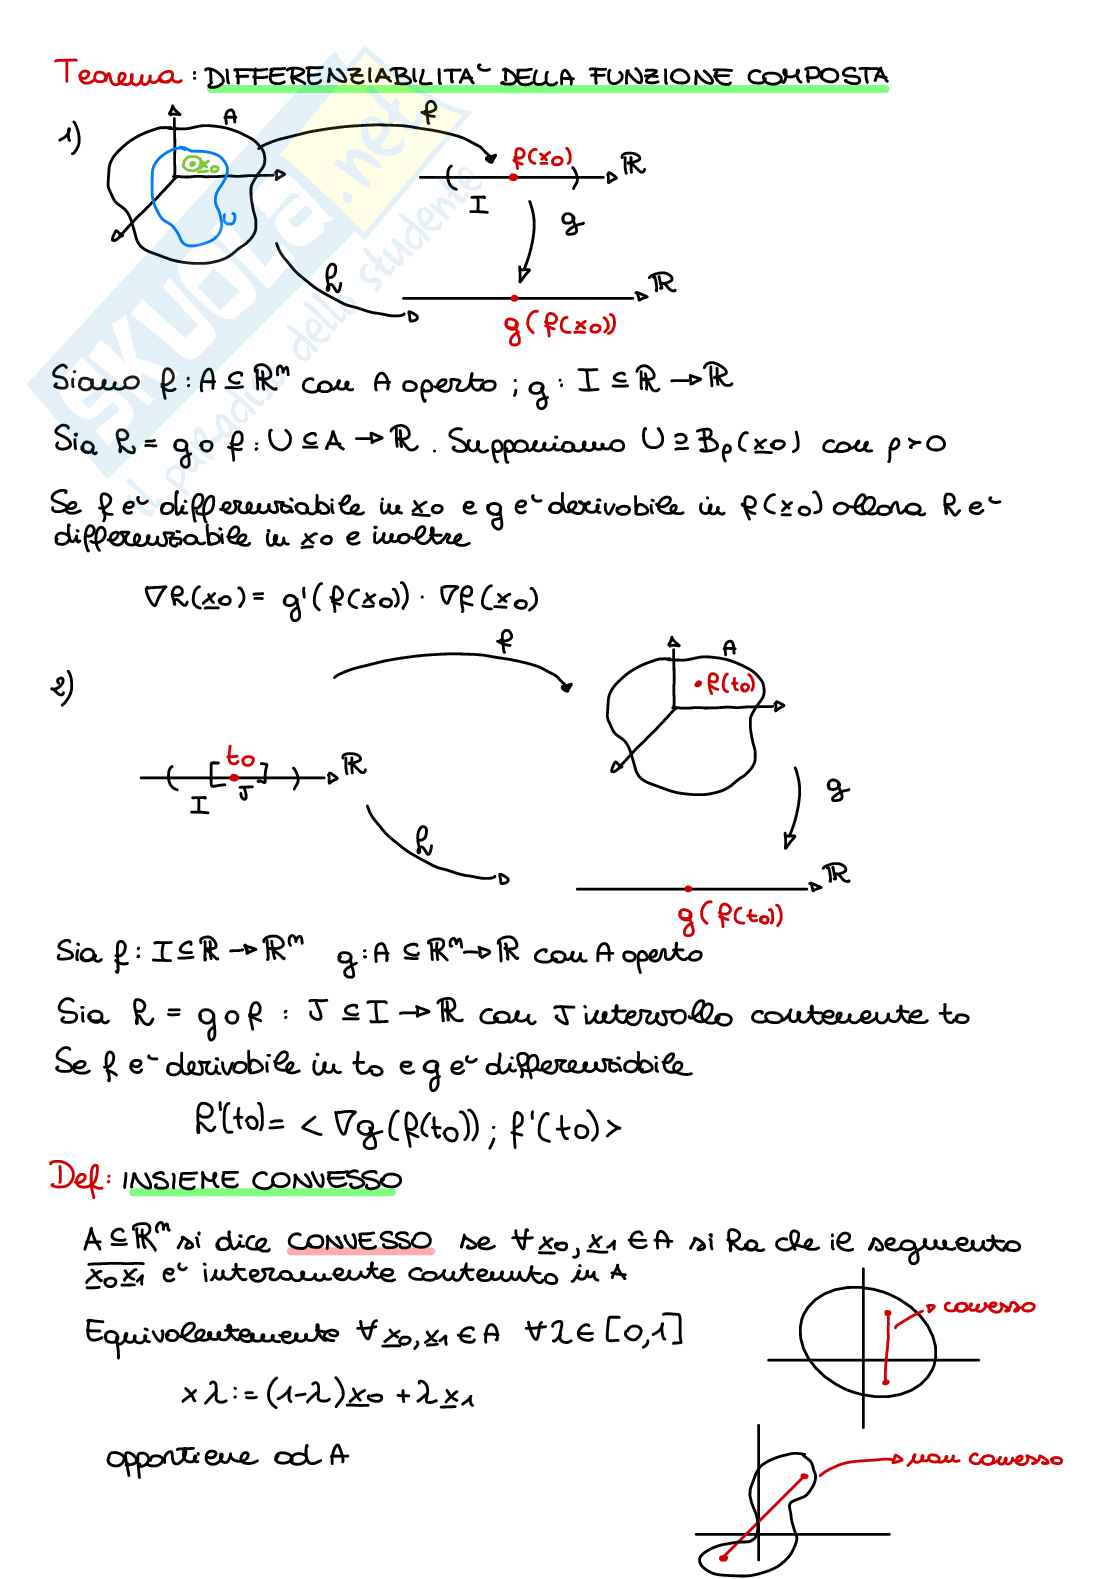 Teorema : DIFFERENZIABILITA' DELLA FUNZIONE COMPOSTA
1)
A
f
x0
U
f(x0)
ℝ
I
g
h
ℝ
g(f(x0))
SKUOLA.net
il paradiso dello studente
Siano f : A ⊆ ℝⁿ con A aperto ; g : I ⊆ ℝ → ℝ
Sia h = g o f : U ⊆ A → ℝ . Supponiamo U ⊇ Bρ(x0) con ρ > 0
Se f e' differenziabile in x0 e g e' derivabile in f(x0) allora h e'
differenziabile in x0 e inoltre
∇h(x0) = g'(f(x0)) · ∇f(x0)
2)
f
A
f(t0)
t0
ℝ
I
J
h
g
ℝ
g(f(t0))
Sia f : I ⊆ ℝ → ℝⁿ g : A ⊆ ℝⁿ → ℝ con A aperto
Sia h = g o f : J ⊆ I → ℝ con J intervallo contenente t0
Se f e' derivabile in t0 e g e' differenziabile
h'(t0) = < ∇g(f(t0)) ; f'(t0) >
Def : INSIEME CONVESSO
A ⊆ ℝⁿ si dice CONVESSO se ∀ x0, x1 ∈ A si ha che il segmento
x0x1 e' interamente contenuto in A
Equivalentemente ∀ x0, x1 ∈ A ∀ λ ∈ [0,1]
xλ := (1-λ)x0 + λx1
appartiene ad A
convesso
non convesso